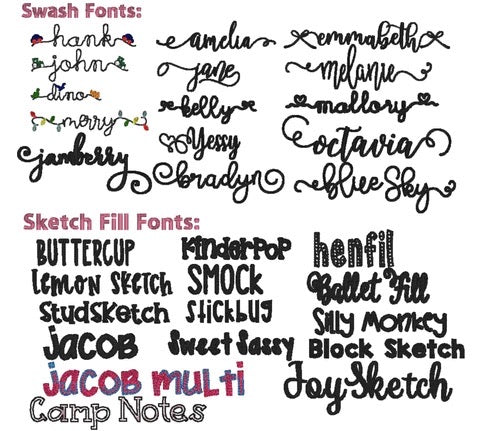 Swash Fonts:
hank
john
dino
merry
jamberry
amelia
jane
kelly
Yessy
bradyn
emmabeth
melanie
mallory
octavia
blue Sky
Sketch Fill Fonts:
BUTTERCUP
Lemon Sketch
StudSketch
Jacob
Jacob Multi
Camp Notes
KinderPop
SMOCK
Stickbug
Sweet Sassy
henfil
Ballet Fill
Silly Monkey
Block Sketch
Joy Sketch